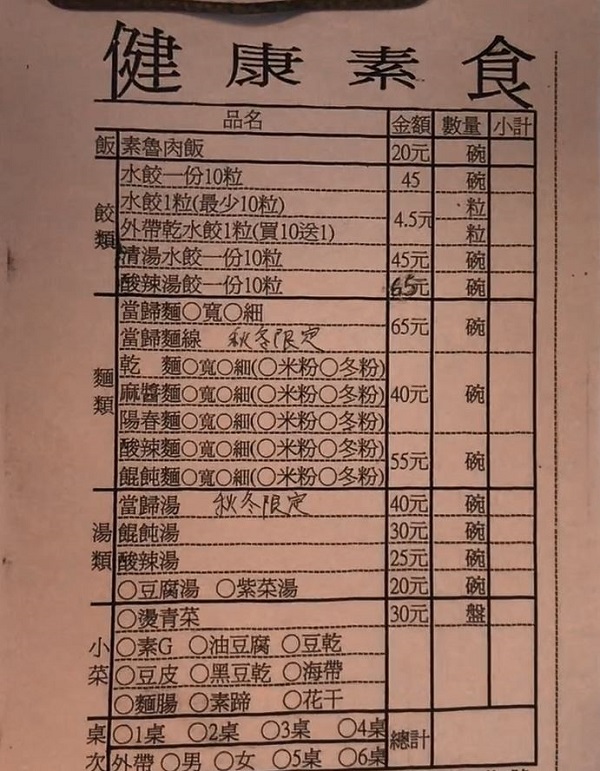 健康素食
品名 金額 數量 小計
飯 素魯肉飯 20元 碗
餃類 水餃一份10粒 45 碗
水餃1粒(最少10粒) 4.5元 粒
外帶乾水餃1粒(買10送1) 粒
清湯水餃一份10粒 45元 碗
酸辣湯餃一份10粒 65元 碗
麵類 當歸麵○寬○細 65元 碗
當歸麵線 秋冬限定
乾 麵○寬○細(○米粉○冬粉)
麻醬麵○寬○細(○米粉○冬粉) 40元 碗
陽春麵○寬○細(○米粉○冬粉)
酸辣麵○寬○細(○米粉○冬粉) 55元 碗
餛飩麵○寬○細(○米粉○冬粉)
湯類 當歸湯 秋冬限定 40元 碗
餛飩湯 30元 碗
酸辣湯 25元 碗
○豆腐湯 ○紫菜湯 20元 碗
小菜 ○燙青菜 30元 盤
○素G ○油豆腐 ○豆乾
○豆皮 ○黑豆乾 ○海帶
○麵腸 ○素蹄 ○花干
桌次 ○1桌 ○2桌 ○3桌 ○4桌 總計
外帶 ○男 ○女 ○5桌 ○6桌